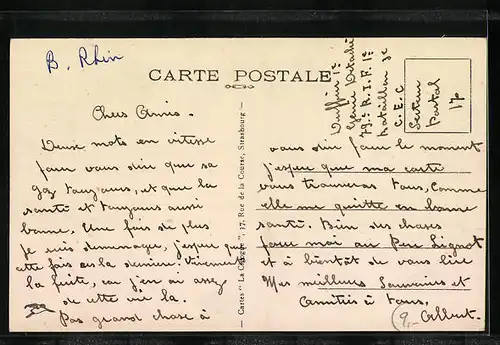 B. Rhin
CARTE POSTALE
Chers Amis.
Deux mots en vitesse
pour vous dire que sa
gaz toujours, et que la
santé et toujours aussi
bonne. Une fois de plus
je suis demenager, j'espere que
cette fois ces la derniere vivement
la fuite, car j'en ai assez
de cette vie la.
Pas grand chose à
Cartes " La Cigogne ", 17, Rue de la Course, Strasbourg
Génie
79e R.I.F. 1e
Bataillon
C.E.C
Secteur
Postal
17
vous dire pour le moment
j'espere que ma carte
vous trouveras tous, comme
elle me quitte en bonne
santé. Bien des choses
pour moi au Peu Signot
et à bientôt de vous lire
Mes meilleurs Souvenirs et
Amitiés à tous.
(9,- Albert.